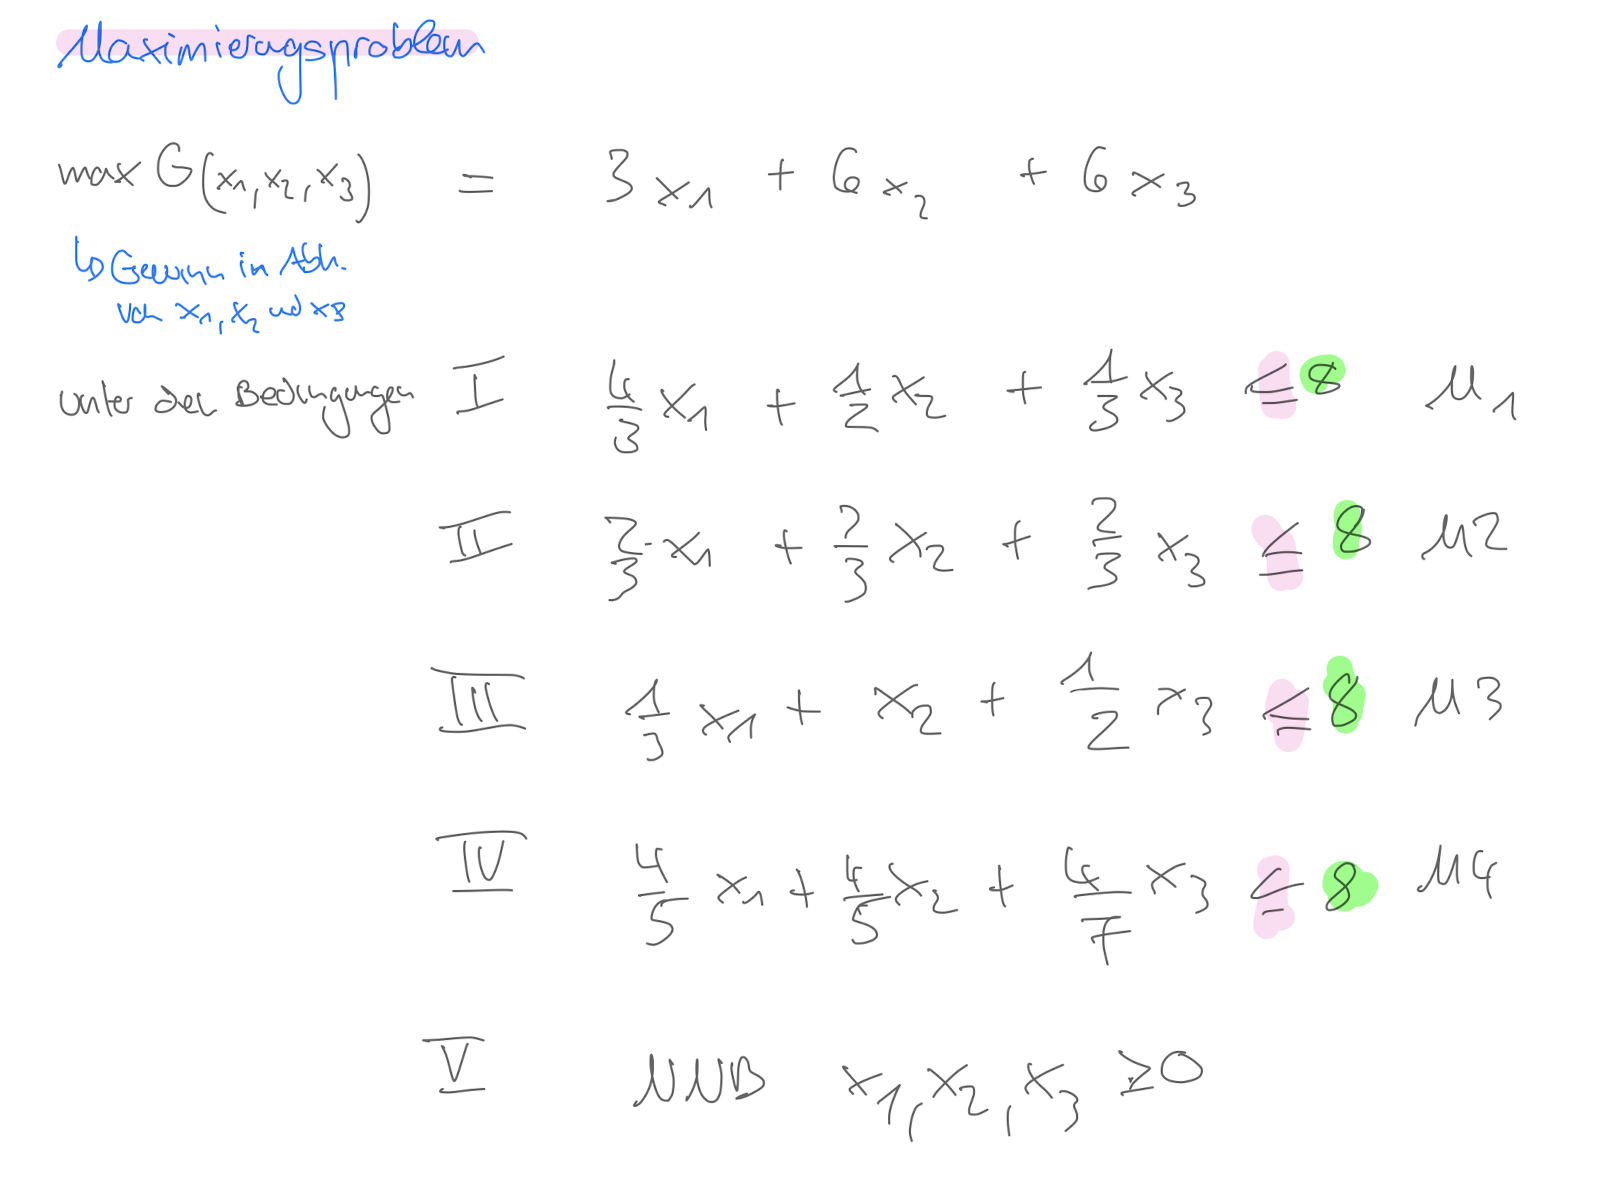 Maximierungsproblem
max G(x1, x2, x3) = 3 x1 + 6 x2 + 6 x3
↳ Gewinn in Abh.
von x1, x2 und x3
unter den Bedingungen I 4/3 x1 + 1/2 x2 + 1/3 x3 ≤ 8 M1
II 2/3 · x1 + 2/3 x2 + 2/3 x3 ≤ 8 M2
III 1/3 x1 + x2 + 1/2 x3 ≤ 8 M3
IV 4/5 x1 + 4/5 x2 + 4/7 x3 ≤ 8 M4
V NNB x1, x2, x3 ≥ 0